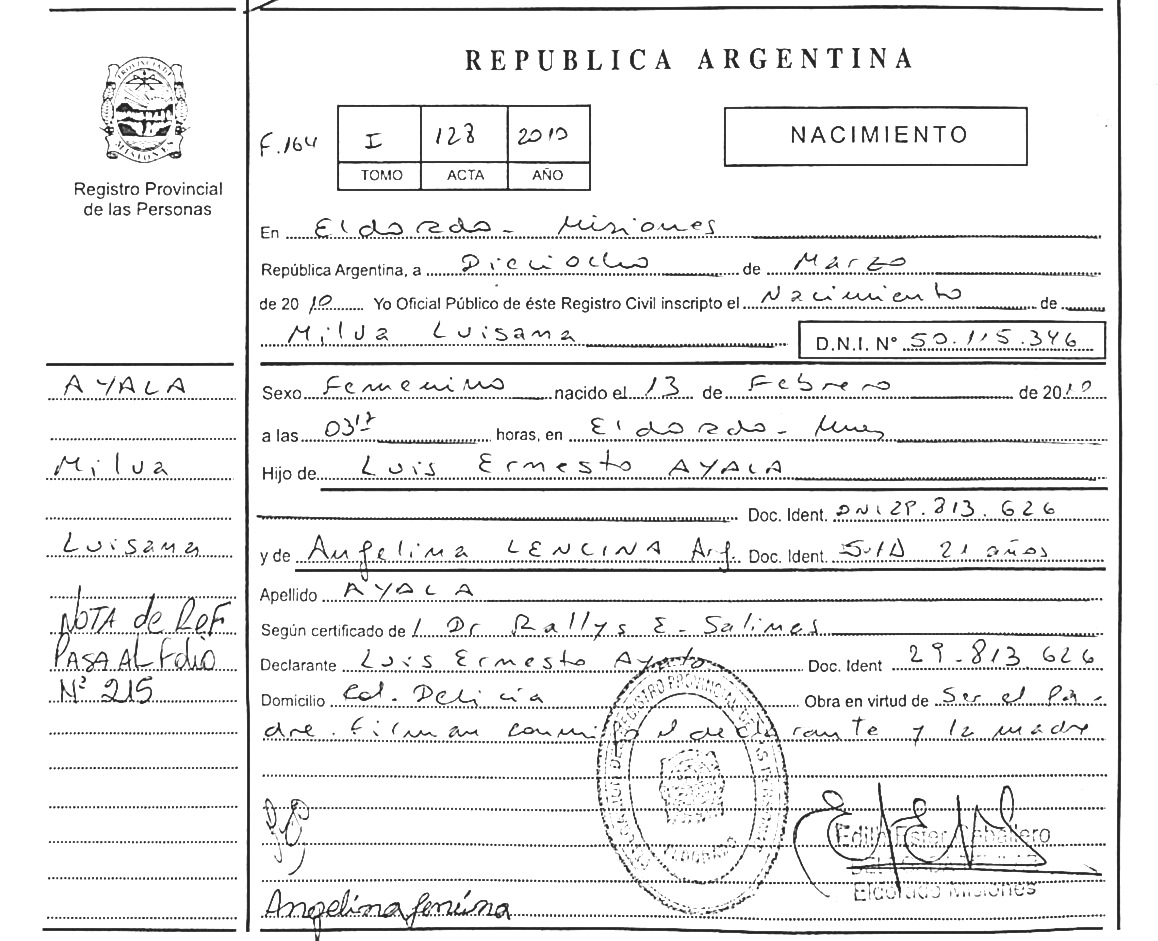 REPUBLICA ARGENTINA
PROVINCIA DE
MISIONES
Registro Provincial
de las Personas
F.164
I 128 2010
TOMO ACTA AÑO
NACIMIENTO
En Eldorado - Misiones
República Argentina, a Dieciocho de Marzo
de 2010 Yo Oficial Público de éste Registro Civil inscripto el Nacimiento de
Milva Luisana D.N.I. N° 50.115.346
AYALA
Milva
Luisana
NOTA de Ref
PASA AL Folio
Nº 215
Sexo Femenino nacido el 13 de Febrero de 2010
a las 03 horas, en Eldorado - Mnes
Hijo de Luis Ernesto AYALA
Doc. Ident. DNI 29.813.626
y de Angelina LENCINA Arg. Doc. Ident. S/ID 21 años
Apellido AYALA
Según certificado de / Dr Rallys E. Salines
Declarante Luis Ernesto Doc. Ident 29.813.626
Domicilio Col. Delicia Obra en virtud de Ser el Pa-
dre. Firman conmigo el declarante y la madre
ELDORADO
Edith Ester Caballero
Eldorado Misiones
Angelina